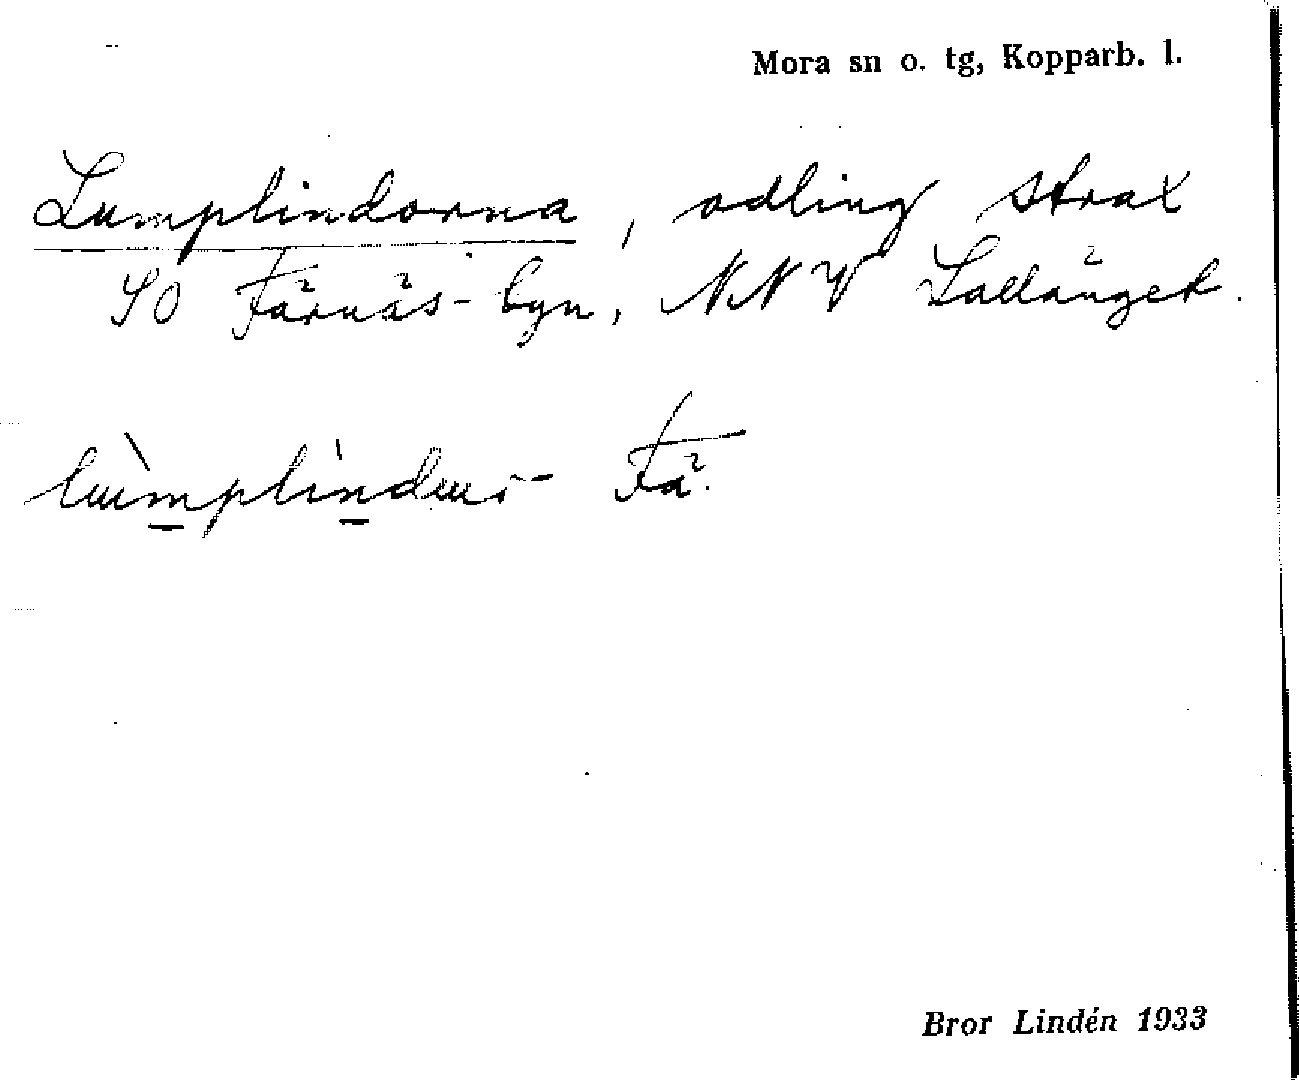 Mora sn o. tg, Kopparb. l.
Lumplindorna, odling strax
SO Färnäs-byn, NNV Lallänget.
lùmplìndur- Fä.
Bror Lindén 1933